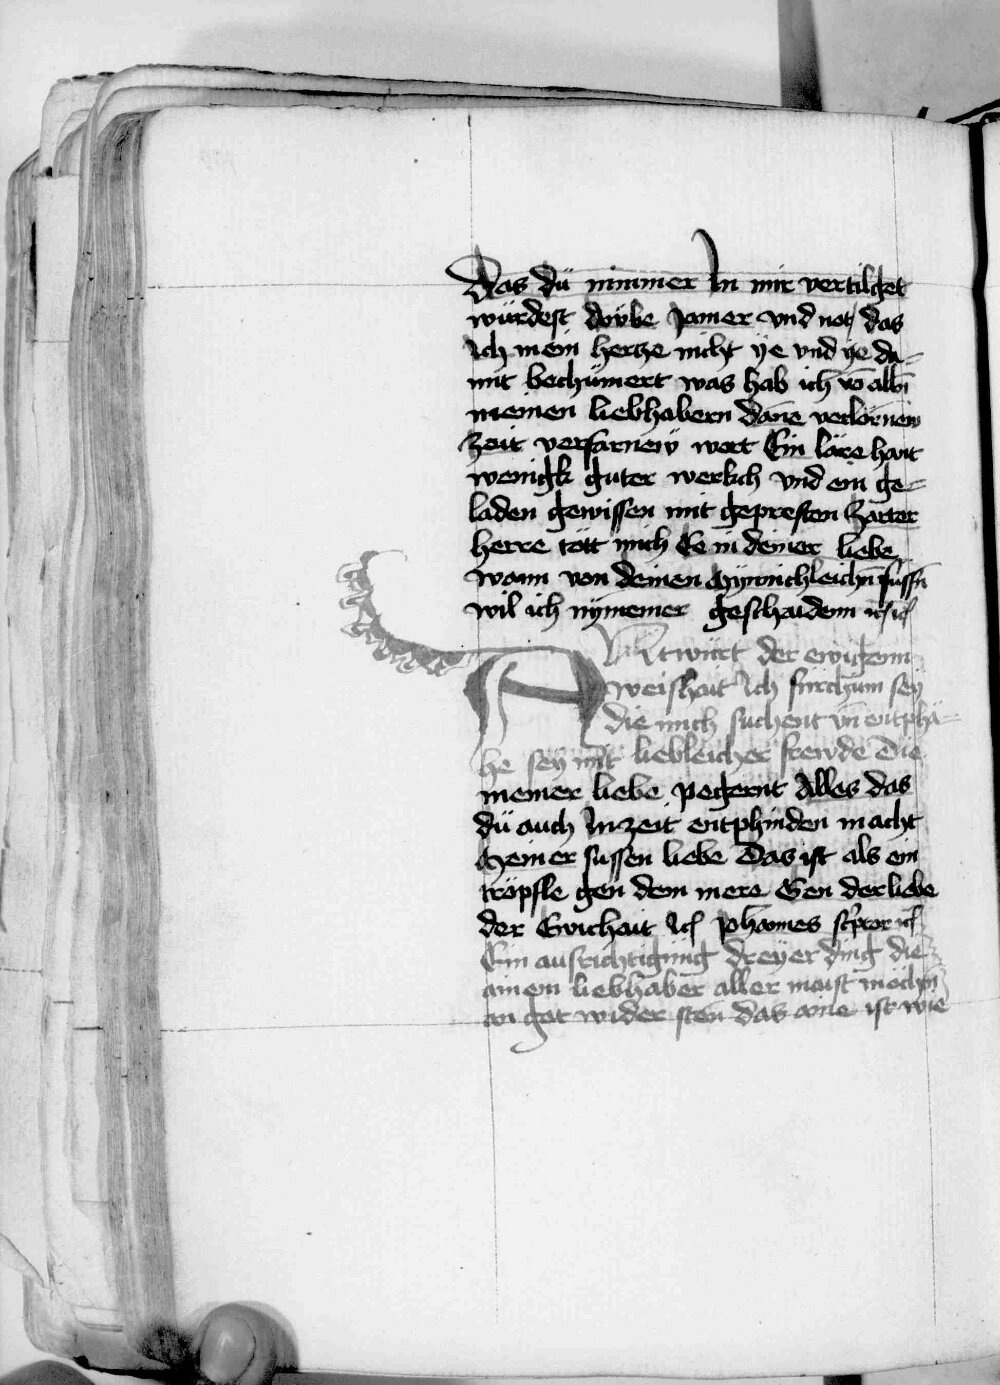 Das dü nimmer In mir vertilget
würdest Awbe Jamer vnd not das
Ich mein hercze nicht ÿe vnd ÿe da-
mit bechümert was hab ich vō alln̄
meinen liebhabern dāne verlornew
zeit verfarnew wort Ein läre hant
wenigk guter werkch vnd ein ge-
laden gewissen mit gepresten Zarter
herre tött mich Ee in deiner liebe
wann von deinen Mynnichleichn̄ füssn̄
wil ich nÿmemer geschaidenn
ANtwürt der ewigenn
weishait Ich fürchum seÿ
die mich suchent vn̄ entphä-
he seÿ mit liebleicher frewde Die
meiner liebe pegernt Alles das
dü auch In zeit entphinden macht
Meiner süssen liebe Das ist als ein
tröpfle gen dem mere Gen der liebe
der Ewichait Johannes
Ein ausrichtigüng dreÿer ding die
ainem liebhaber aller maist möchn̄
an got wider sten das aine ist wie